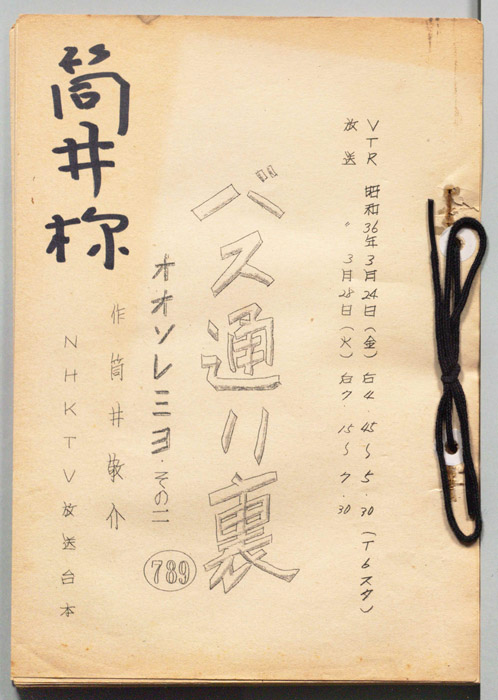 VTR 昭和36年3月24日(金)后4.45〜5.30(T6スタ)
放送 〃 3月28日(火)后7.15〜7.30
バス通り裏
オオソレミヨ・その二
789
作 筒井敬介
NHKTV放送台本
筒井様